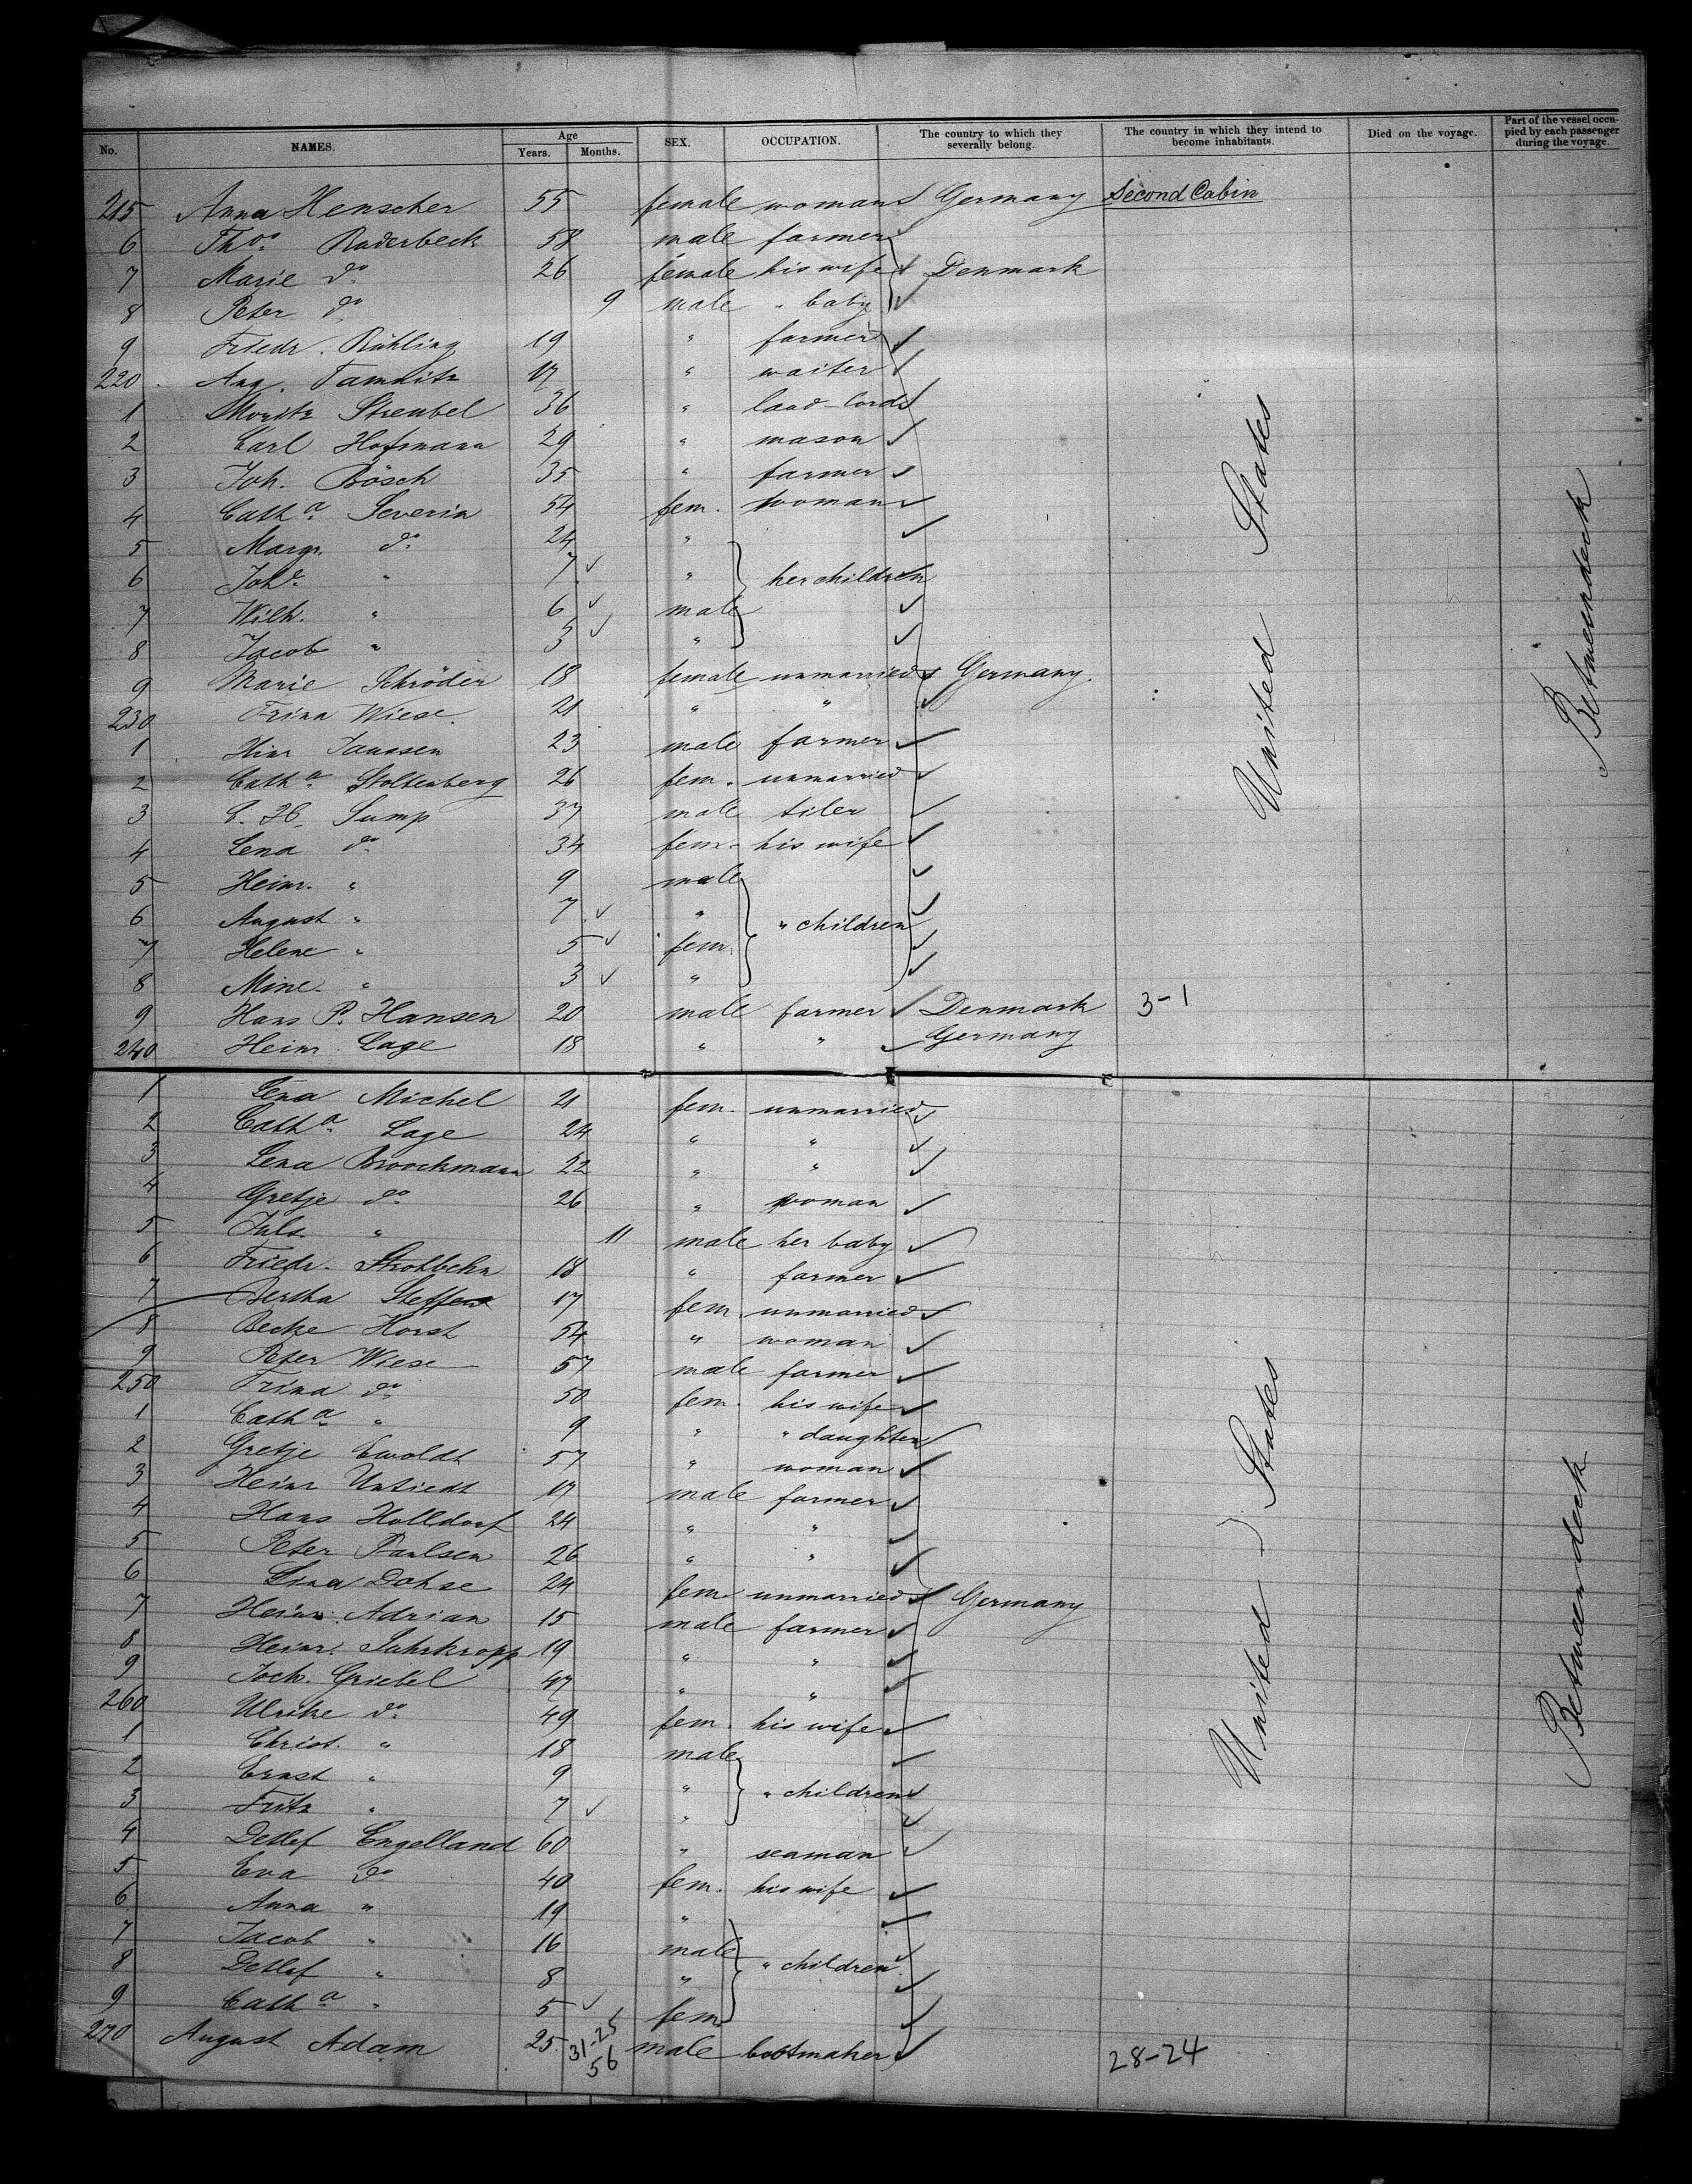 No. NAMES. Age Years. Months. SEX. OCCUPATION. The country to which they severally belong. The country in which they intend to become inhabitants. Died on the voyage. Part of the vessel occupied by each passenger during the voyage.
215 Anna Henscher 55 female woman Germany Second Cabin
6 Tho. Raderbeck 58 male farmer
7 Marie do 26 female his wife Denmark
8 Peter do 9 male " baby
9 Friedr. Rühling 19 " farmer
220 Aug. Tamnitz 17 " waiter
1 Moritz Streubel 36 " land-lord
2 Carl Hofmann 29 " mason
3 Joh. Bösch 35 " farmer
4 Catha Severin 54 fem. woman
5 Margr. do 24 "
6 Johe " 7 " her children
7 Wilh. " 6 male
8 Jacob " 3 "
9 Marie Schröder 18 female unmarried Germany.
230 Trina Wiese 21 " "
1 Hinr Janssen 23 male farmer
2 Catha Stoltenberg 26 fem. unmarried
3 Sump 37 male tiler
4 Lena do 34 fem. his wife
5 Heinr. " 9 male
6 August " 7 " " children
7 Helene " 5 fem.
8 Mine " 3 "
9 Hans P. Hansen 20 male farmer Denmark 3-1
240 Heinr Lage 18 " " Germany
United States
Betweendeck
1 Lena Michel 21 fem. unmarried
2 Catha Lage 24 " "
3 Lena Broockmann 22 " "
4 Gretje do 26 " woman
5 Juls. " 11 male her baby
6 Friedr. Strohbehn 18 " farmer
7 Bertha Steffen 17 fem. unmarried
8 Becke Horst 54 " woman
9 Peter Wiese 57 male farmer
250 Trina do 50 fem. his wife
1 Catha " 9 " " daughter
2 Gretje Ewoldt 57 " woman
3 Heinr Untiedt 17 male farmer
4 Hans Holldorf 24 " "
5 Peter Paulsen 26 " "
6 Lina Dohse 24 fem. unmarried Germany
7 Heinr. Adrian 15 male farmer
8 Heinr. Suhrkropp 19 " "
9 Joch. Griebel 47 " "
260 Ulrike do 49 fem. his wife
1 Christ. " 18 male
2 Ernst " 9 " " children
3 Fritz " 7 "
4 Detlef Engelland 60 " seaman
5 Eva do 40 fem. his wife
6 Anna " 19 "
7 Jacob " 16 male " children
8 Detlef " 8 "
9 Catha " 5 fem
270 August Adam 25 31-25 male bootmaker 28-24
56
United States
Betweendeck